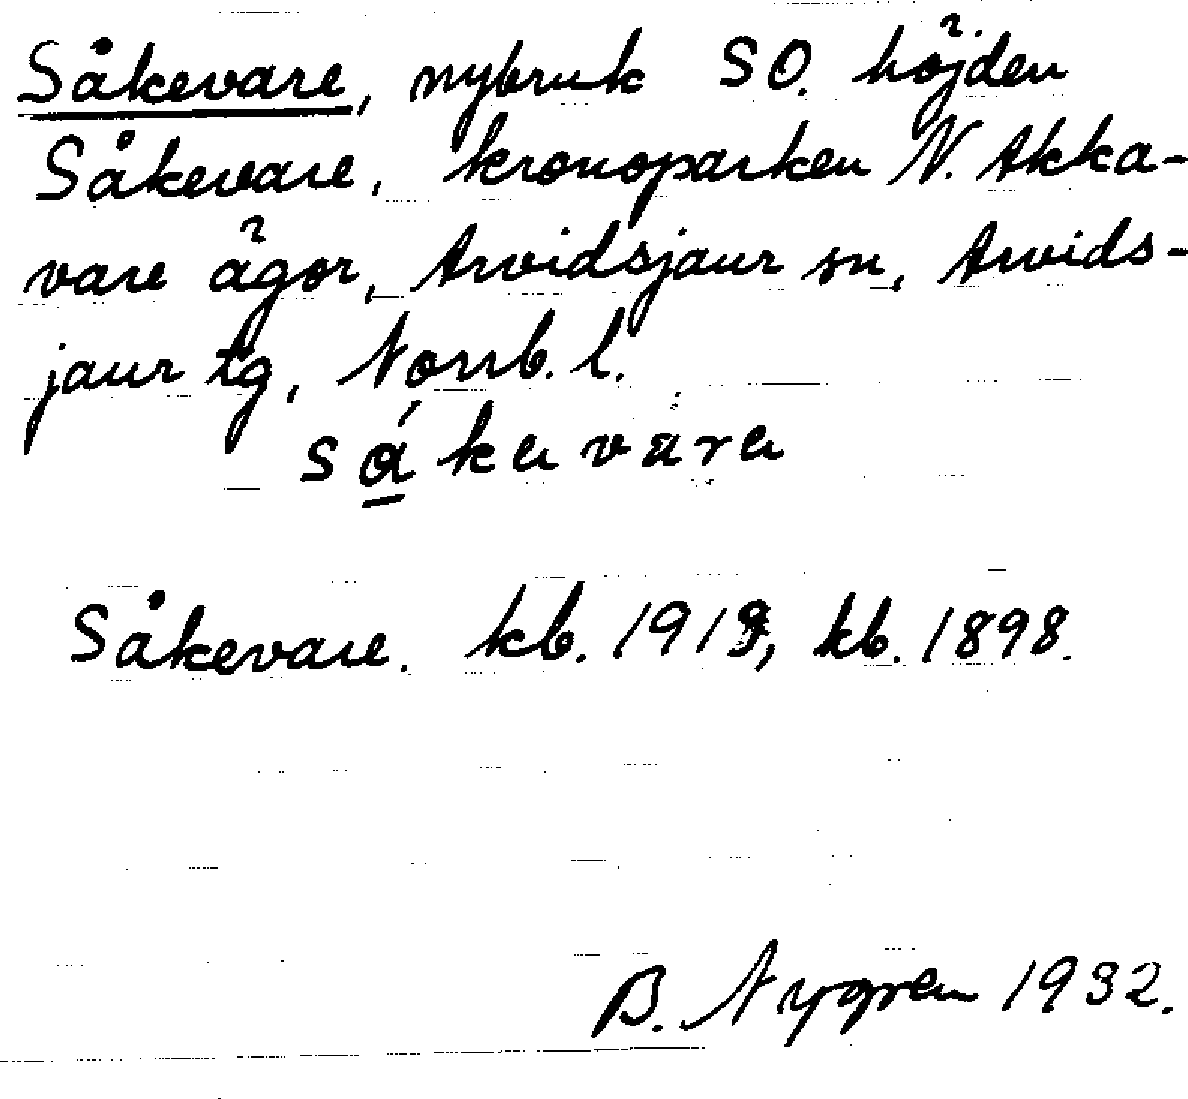 Såkevare, nybruk SO. höjden
Såkevare, kronoparken N. Akka-
vare ägor, Arvidsjaur sn, Arvids-
jaur tg, Norrb. l.
Såkevare. kb. 1919, kb. 1898.
B. Nygren 1932.